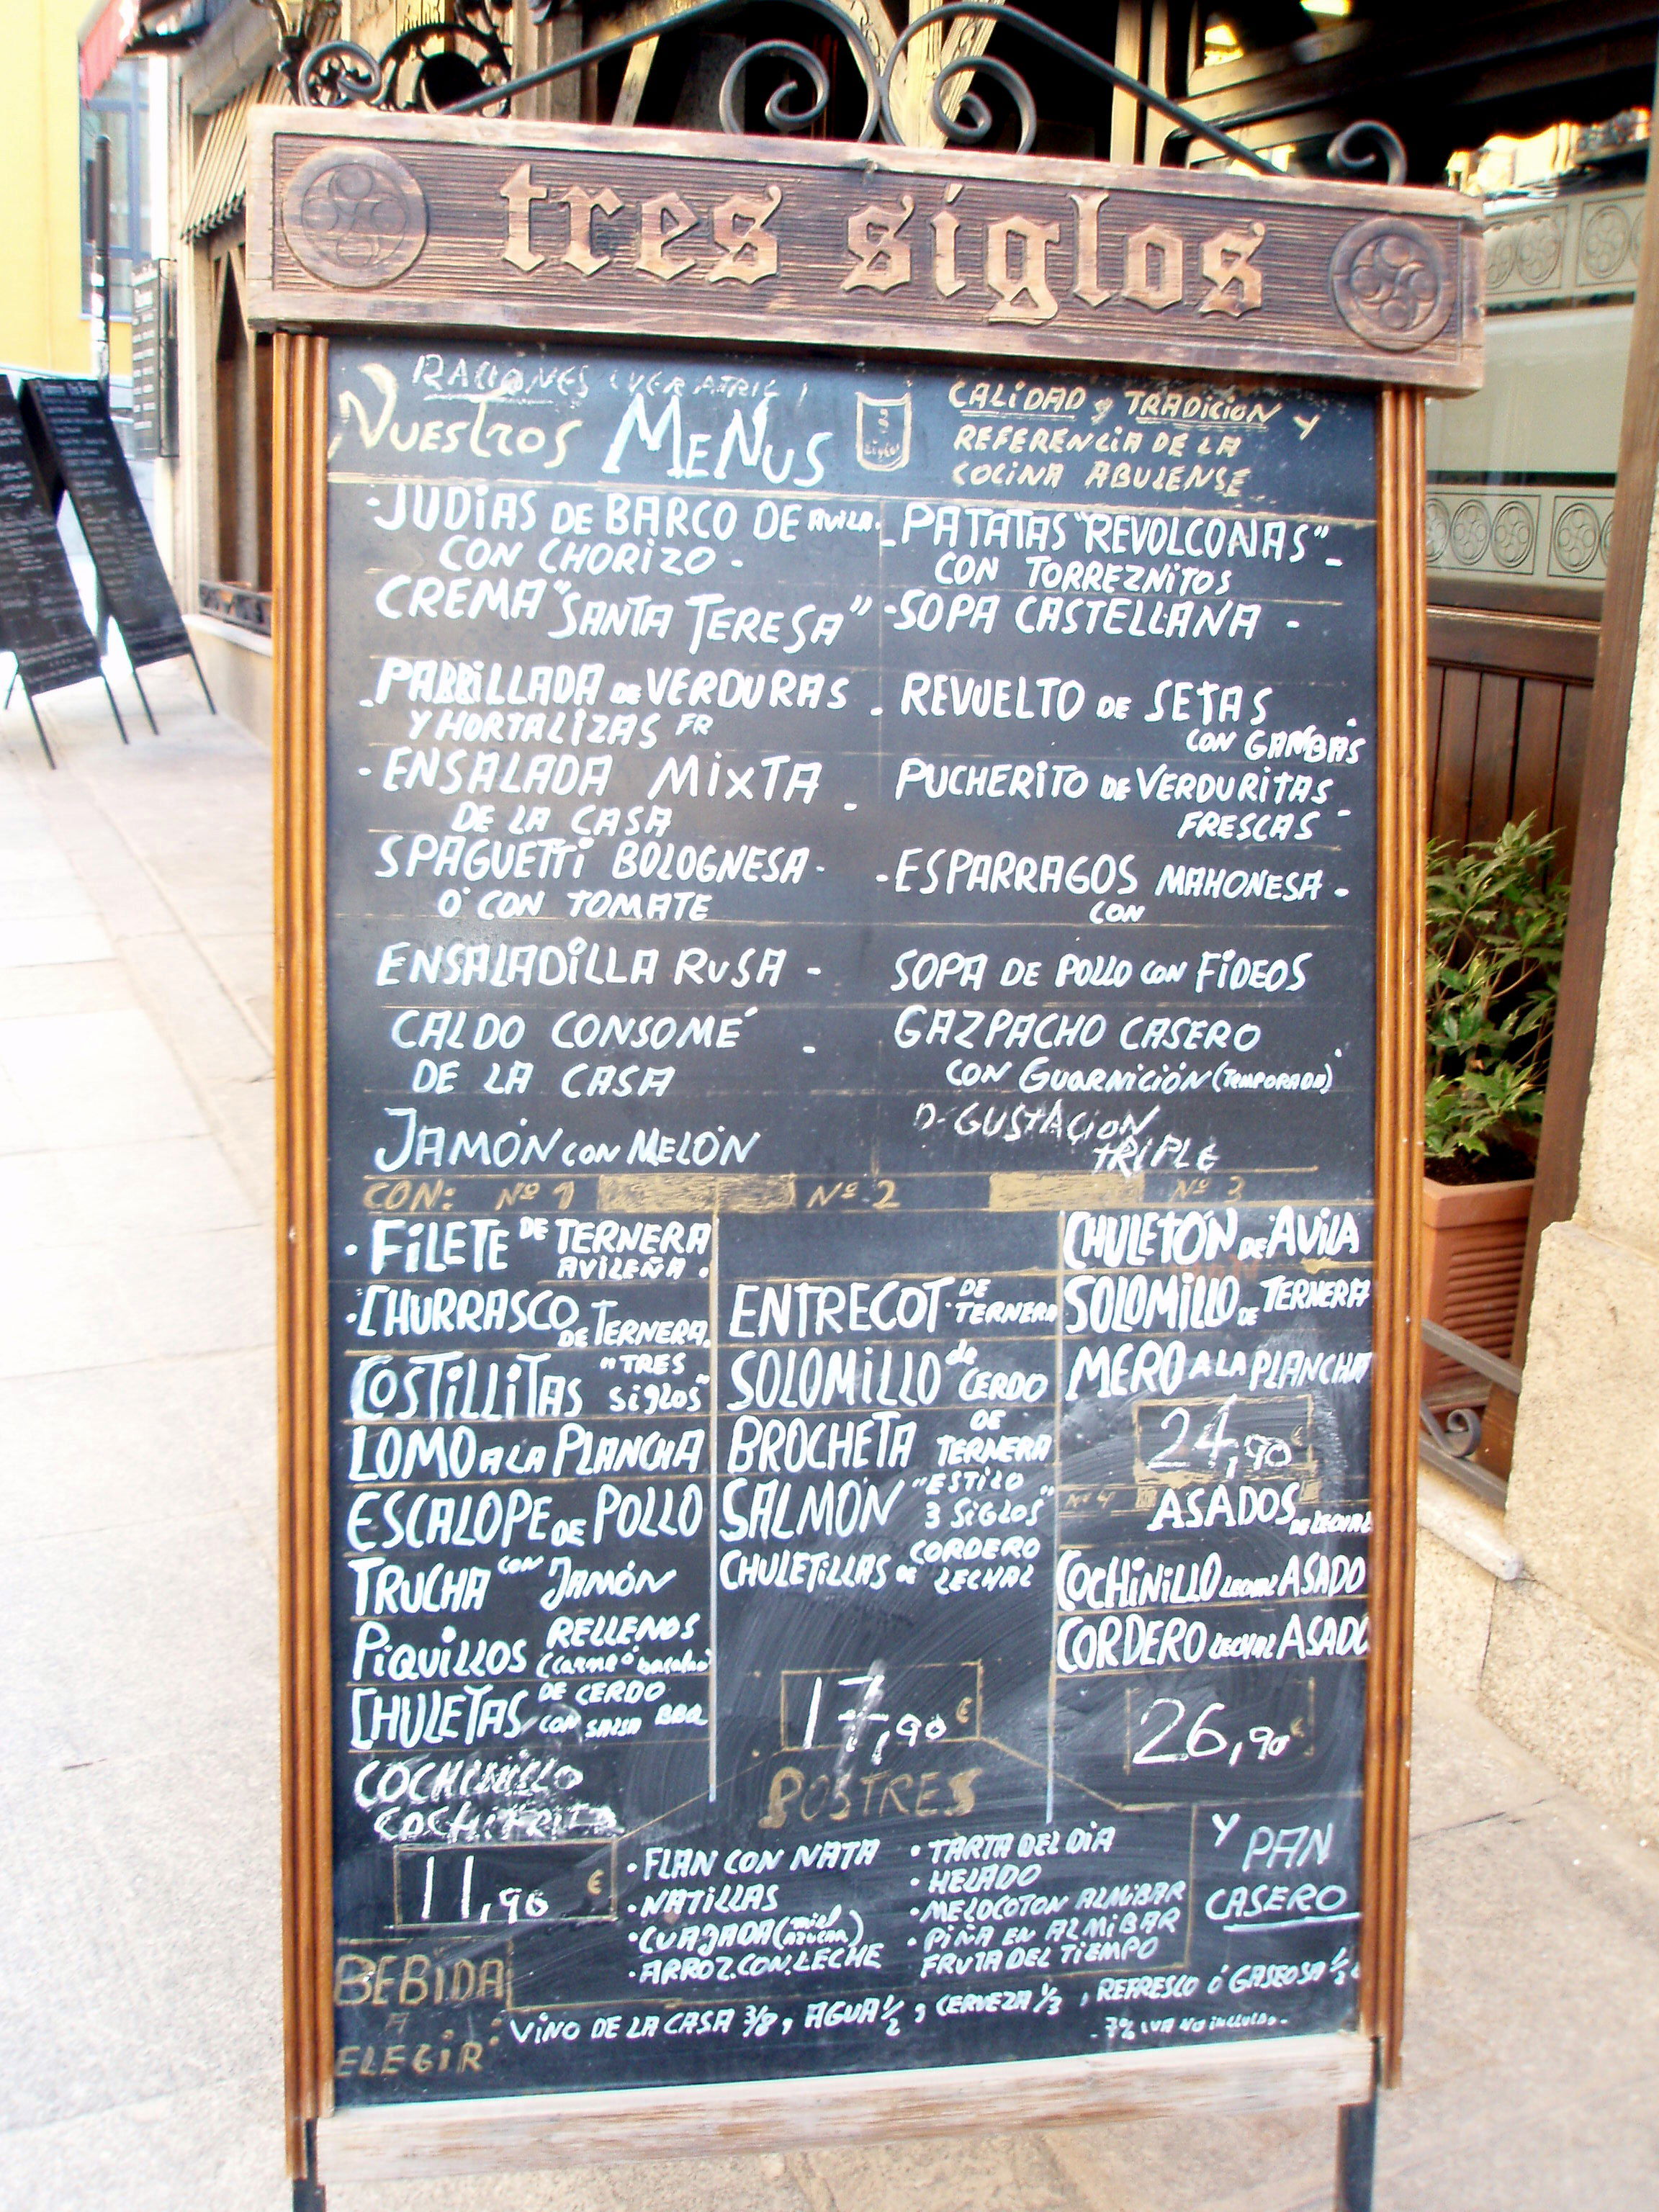 tres siglos
RACIONES (VER ATRIL)
NUESTROS MENUS
3
Siglos
CALIDAD y TRADICION Y
REFERENCIA DE LA
COCINA ABULENSE
·JUDIAS DE BARCO DE AVILA.
CON CHORIZO -
CREMA "SANTA TERESA"
PARRILLADA DE VERDURAS
Y HORTALIZAS FR
- ENSALADA MIXTA
DE LA CASA
SPAGUETTI BOLOGNESA -
Ó CON TOMATE
ENSALADILLA RUSA -
CALDO CONSOMÉ
DE LA CASA
JAMÓN CON MELÓN
- PATATAS "REVOLCONAS" -
CON TORREZNITOS
- SOPA CASTELLANA -
REVUELTO DE SETAS
CON GAMBAS
PUCHERITO DE VERDURITAS
FRESCAS
- ESPARRAGOS MAHONESA -
CON
SOPA DE POLLO CON FIDEOS
GAZPACHO CASERO
CON GUARNICIÓN (TEMPORADA)
D-GUSTACION
TRIPLE
CON: Nº 1 Nº 2 Nº 3
· FILETE DE TERNERA
AVILEÑA.
· CHURRASCO DE TERNERA.
COSTILLITAS "TRES
SIGLOS"
LOMO A LA PLANCHA
ESCALOPE DE POLLO
TRUCHA CON JAMÓN
PIQUILLOS RELLENOS
(carne ó bacalao)
CHULETAS DE CERDO
CON SALSA BBQ
COCHINILLO
COCHIFRITO
11,90 €
ENTRECOT DE
TERNERA
SOLOMILLO de
CERDO
BROCHETA DE
TERNERA
SALMÓN "ESTILO
3 SIGLOS"
CHULETILLAS DE CORDERO
LECHAL
17,90 €
CHULETÓN DE AVILA
SOLOMILLO DE TERNERA
MERO A LA PLANCHA
24,90 €
Nº 4 ASADOS DE LECHAL
COCHINILLO LECHAL ASADO
CORDERO LECHAL ASADO
26,90 €
POSTRES
· FLAN CON NATA
· NATILLAS
· CUAJADA (miel
azucar)
· ARROZ.CON.LECHE
· TARTA DEL DIA
· HELADO
· MELOCOTON ALMIBAR
· PIÑA EN ALMIBAR
FRUTA DEL TIEMPO
Y PAN
CASERO
BEBIDA
A
ELEGIR:
VINO DE LA CASA 3/8, AGUA 1/2, CERVEZA 1/3, REFRESCO Ó GASEOSA 1/2
- 7% IVA NO INCLUIDO.-